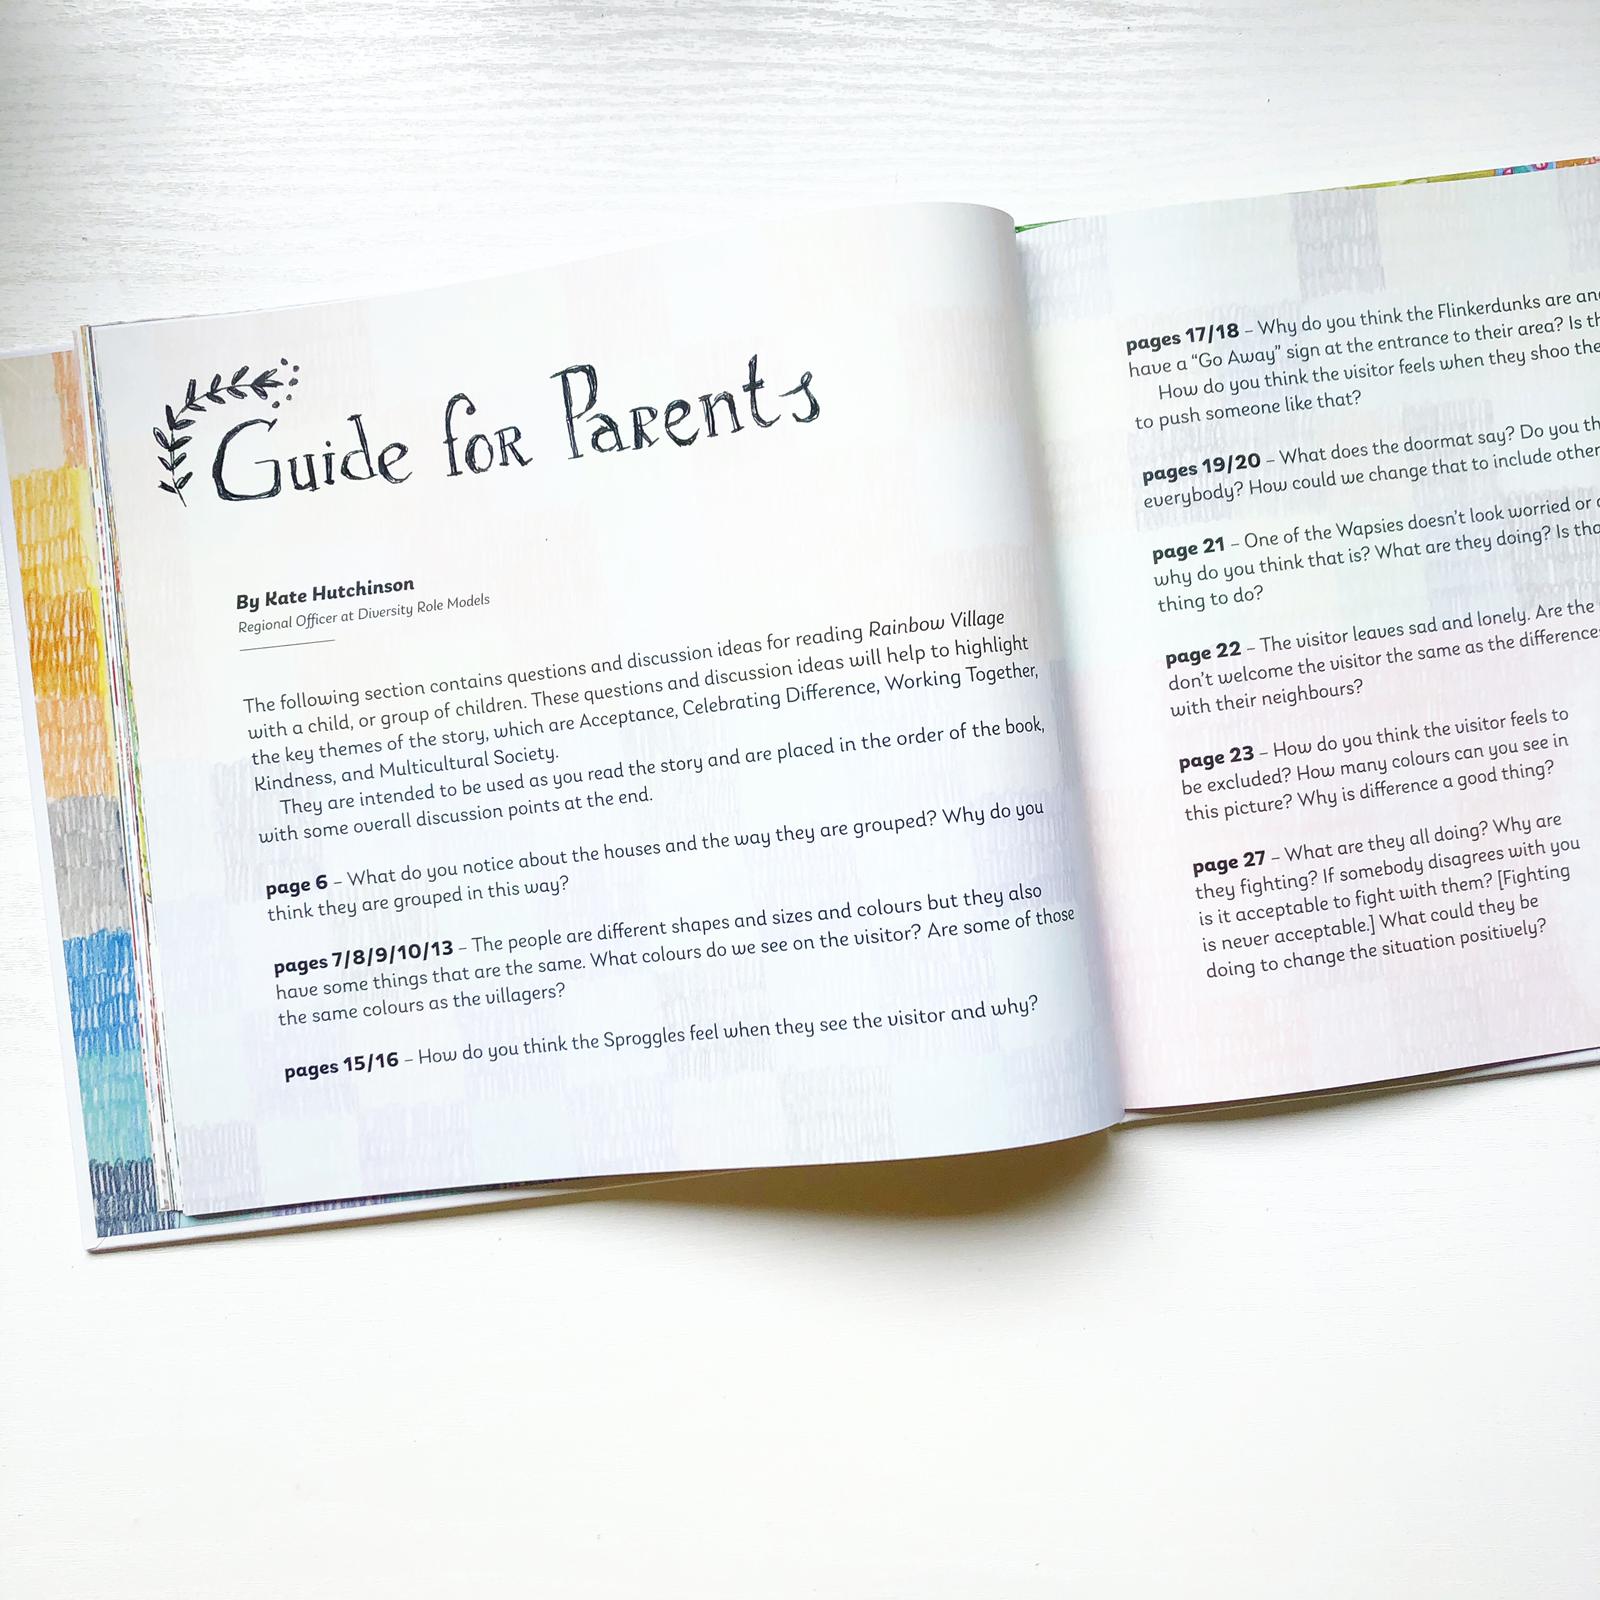 Guide for Parents
By Kate Hutchinson
Regional Officer at Diversity Role Models
The following section contains questions and discussion ideas for reading Rainbow Village
with a child, or group of children. These questions and discussion ideas will help to highlight
the key themes of the story, which are Acceptance, Celebrating Difference, Working Together,
Kindness, and Multicultural Society.
They are intended to be used as you read the story and are placed in the order of the book,
with some overall discussion points at the end.
page 6 – What do you notice about the houses and the way they are grouped? Why do you
think they are grouped in this way?
pages 7/8/9/10/13 – The people are different shapes and sizes and colours but they also
have some things that are the same. What colours do we see on the visitor? Are some of those
the same colours as the villagers?
pages 15/16 – How do you think the Sproggles feel when they see the visitor and why?
pages 17/18 – Why do you think the Flinkerdunks are
have a “Go Away” sign at the entrance to their area? Is
How do you think the visitor feels when they shoo
to push someone like that?
pages 19/20 – What does the doormat say? Do you
everybody? How could we change that to include
page 21 – One of the Wapsies doesn’t look worried or
why do you think that is? What are they doing? Is
thing to do?
page 22 – The visitor leaves sad and lonely. Are the
don’t welcome the visitor the same as the
with their neighbours?
page 23 – How do you think the visitor feels to
be excluded? How many colours can you see in
this picture? Why is difference a good thing?
page 27 – What are they all doing? Why are
they fighting? If somebody disagrees with you
is it acceptable to fight with them? [Fighting
is never acceptable.] What could they be
doing to change the situation positively?